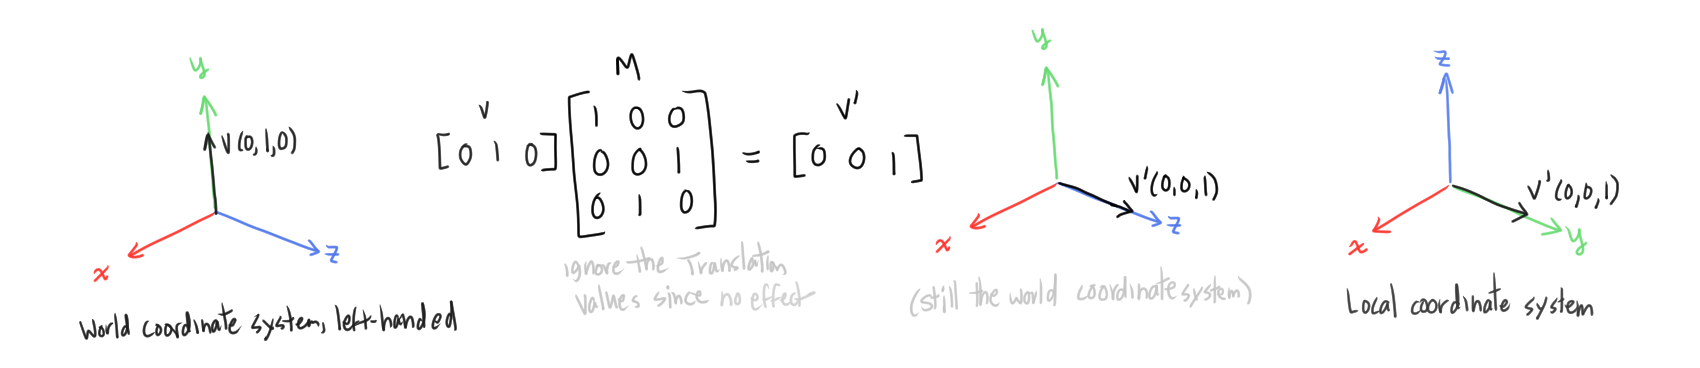 y
V(0,1,0)
x
z
World coordinate system, left-handed
V
[0 1 0]
M
1 0 0
0 0 1
0 1 0
=
V'
[0 0 1]
ignore the Translation
values since no effect
y
V'(0,0,1)
x
z
(still the world coordinate system)
z
V'(0,0,1)
x
y
Local coordinate system